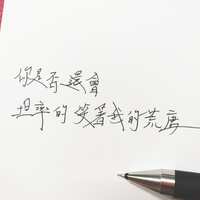 你是否還會
坦率的笑著我的荒唐